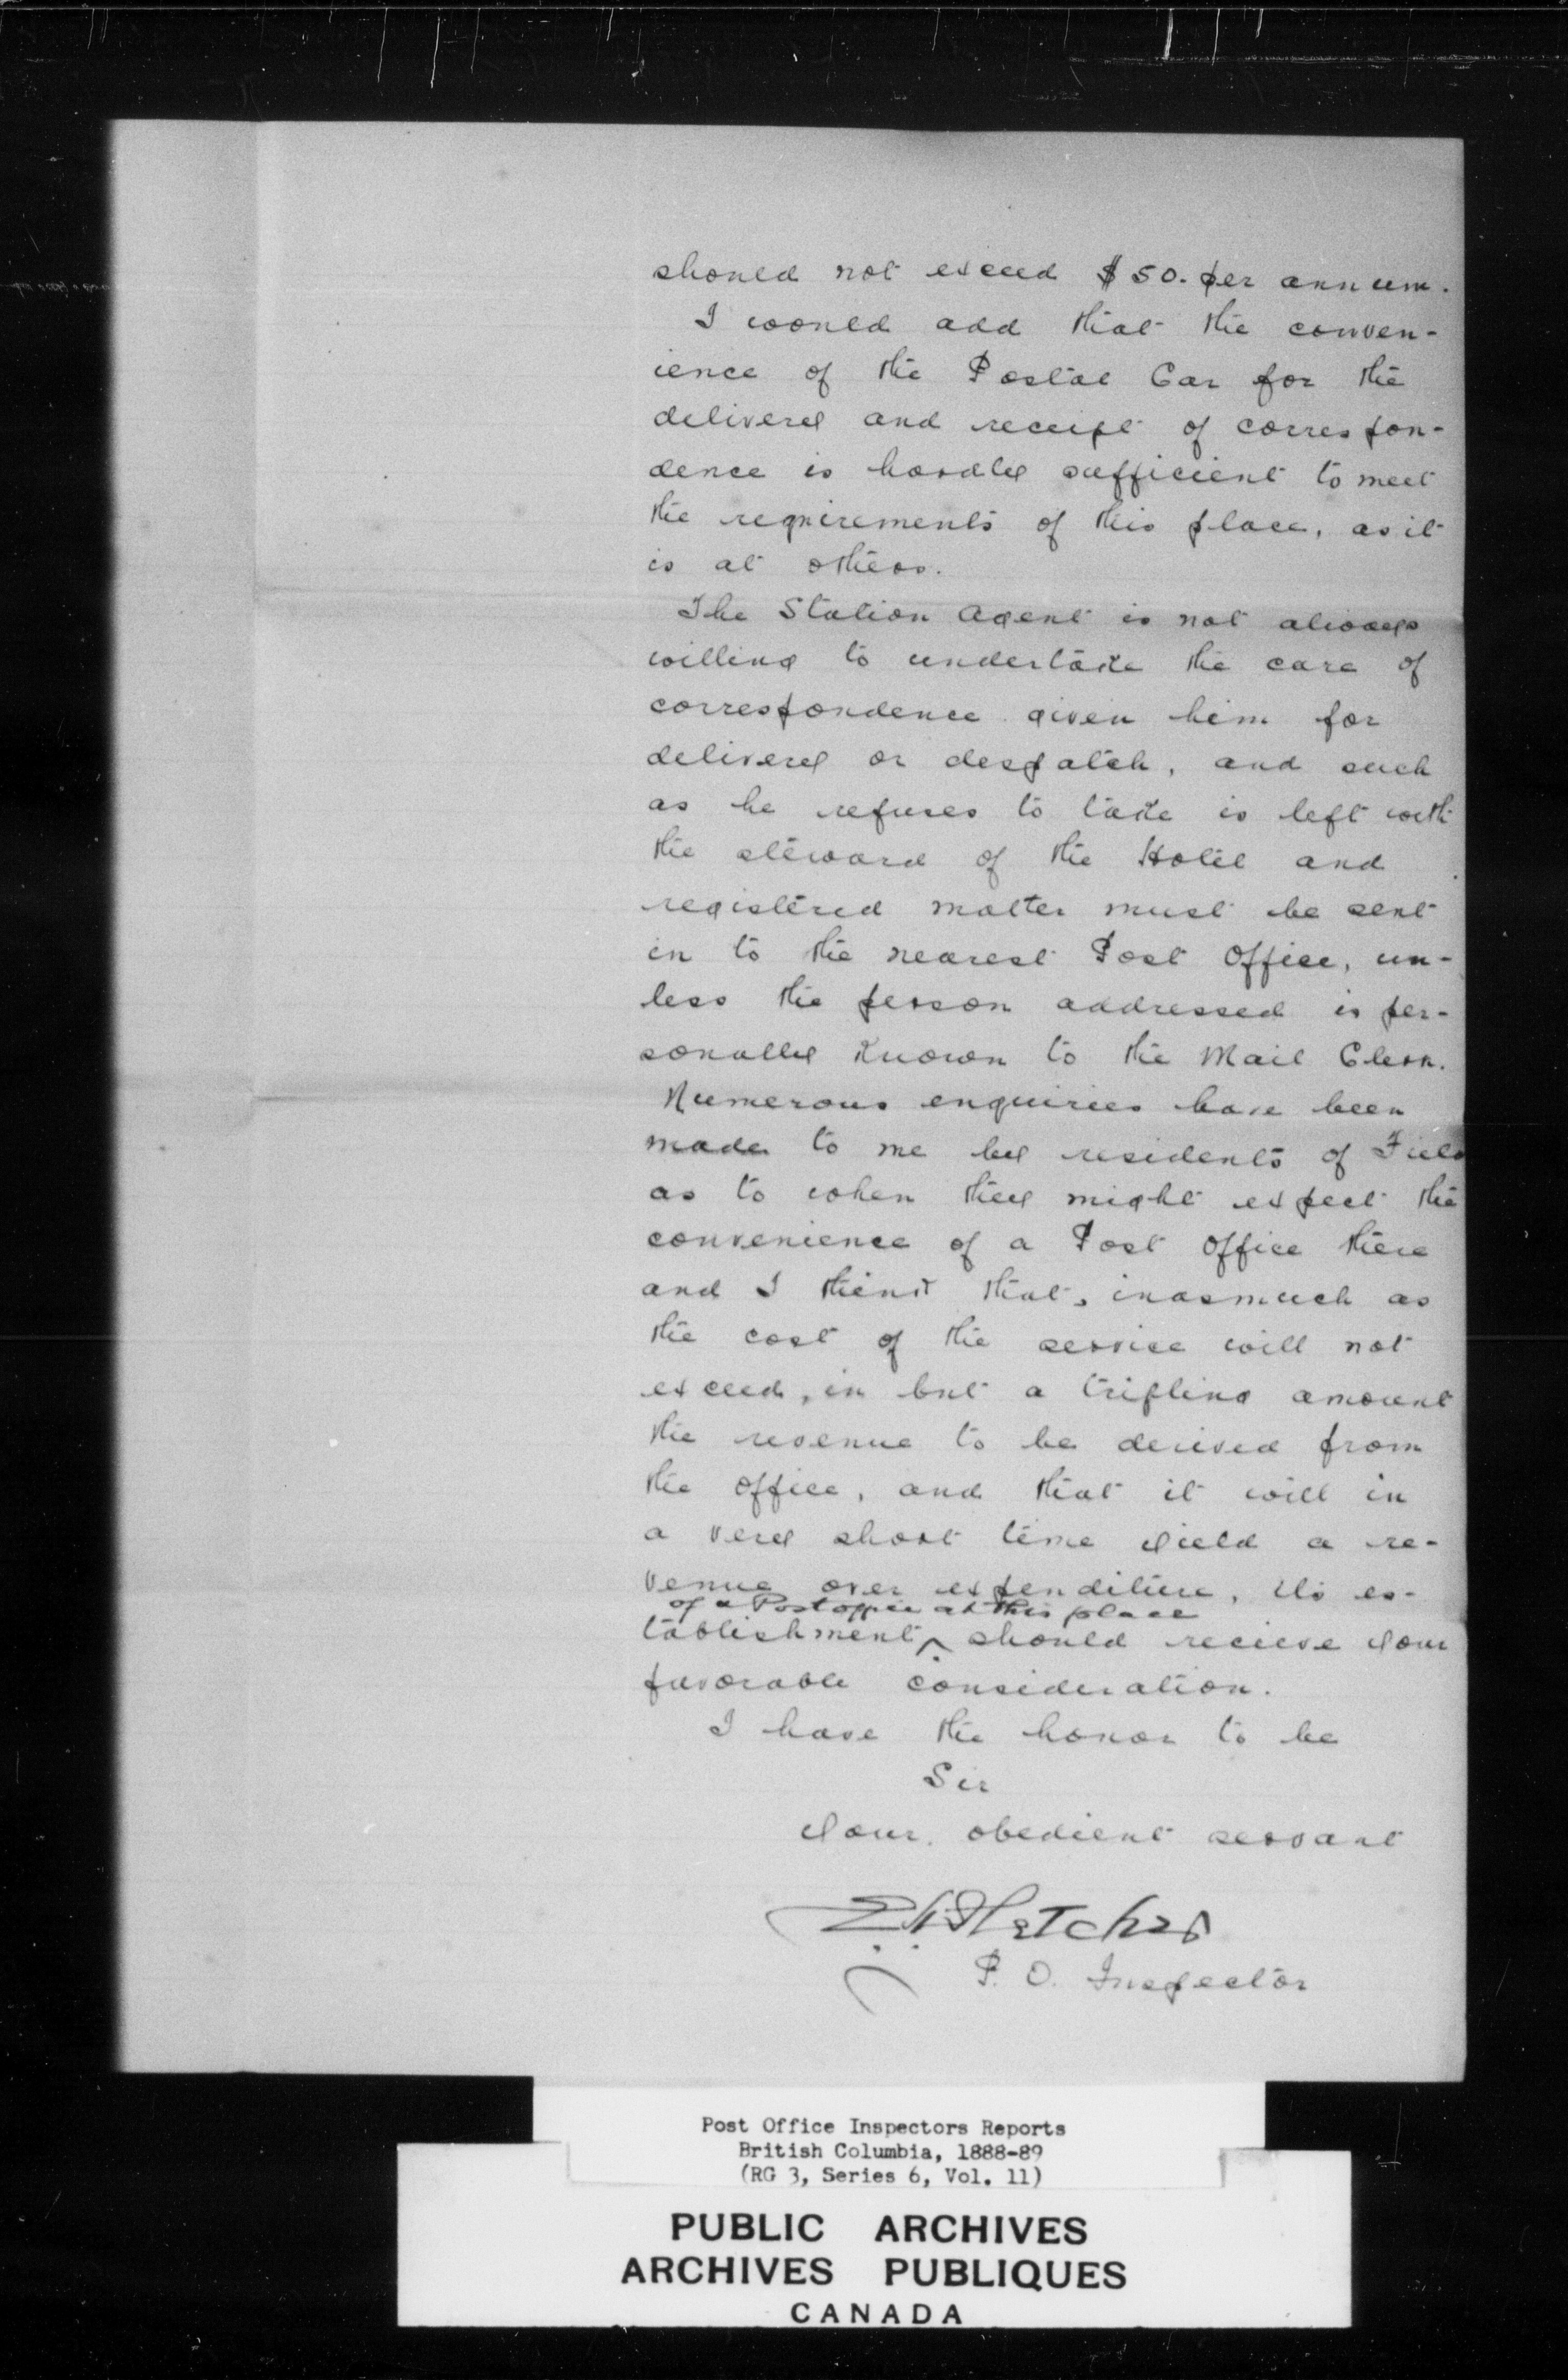 should not exceed $50. per annum.
I would add that the conven-
ience of the Postal Car for the
delivery and receipt of correspon-
dence is hardly sufficient to meet
the requirements of this place, as it
is at others.
The Station Agent is not always
willing to undertake the care of
correspondence given him for
delivery or despatch, and such
as he refuses to take is left with
the steward of the Hotel and
registered matter must be sent
in to the nearest Post Office, un-
less the person addressed is per-
sonally known to the Mail Clerk.
Numerous enquiries have been
made to me by residents of Field
as to when they might expect the
convenience of a Post Office there
and I think that, inasmuch as
the cost of the service will not
exceed, in but a trifling amount
the revenue to be derived from
the office, and that it will in
a very short time yield a re-
venue over expenditure, its es-
of a Post office at this place
tablishment ^ should recieve your
favorable consideration.
I have the honor to be
Sir
Your obedient servant
E.H. Fletcher
P. O. Inspector
Post Office Inspectors Reports
British Columbia, 1888-89
(RG 3, Series 6, Vol. 11)
PUBLIC ARCHIVES
ARCHIVES PUBLIQUES
CANADA